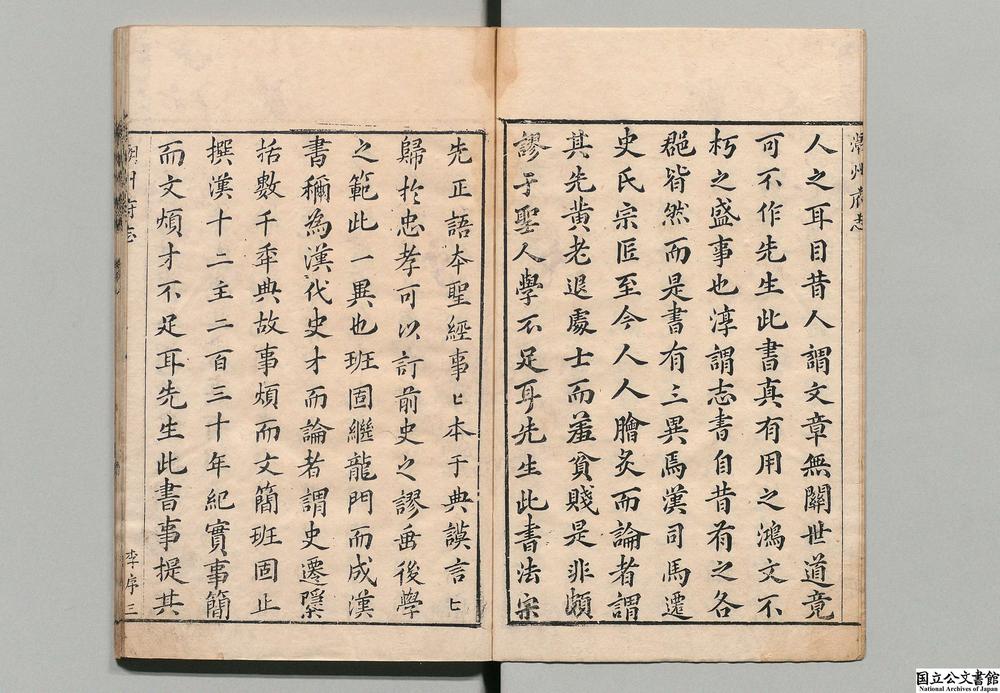 人之耳目昔人謂文章無關世道竟
可不作先生此書真有用之鴻文不
朽之盛事也淳謂志書自昔有之各
郡皆然而是書有三異焉漢司馬遷
史氏宗匠至今人人膾炙而論者謂
其先黃老退處士而羞貧賤是非頗
謬于聖人學不足耳先生此書法宗
先正語本聖經事匕本于典謨言匕
歸於忠孝可以訂前史之謬垂後學
之範此一異也班固繼龍門而成漢
書稱為漢代史才而論者謂史遷檃
括數千年典故事煩而文簡班固止
撰漢十二主二百三十年紀實事簡
而文煩才不足耳先生此書事提其
李序 三
国立公文書館
National Archives of Japan